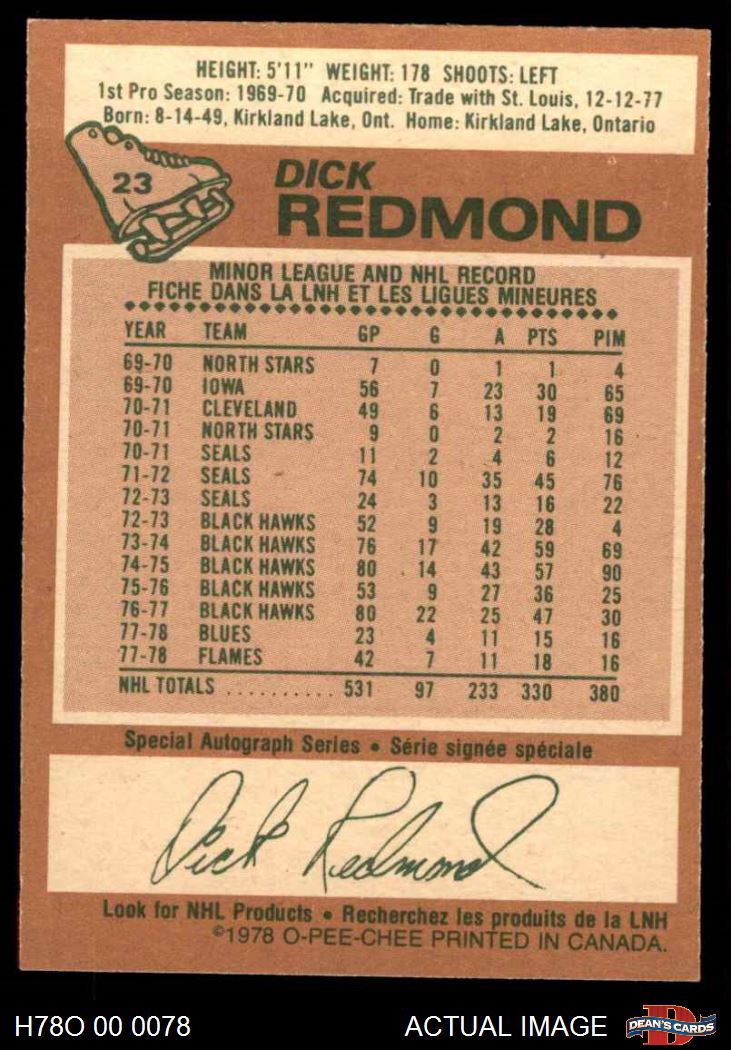 HEIGHT: 5'11" WEIGHT: 178 SHOOTS: LEFT
1st Pro Season: 1969-70 Acquired: Trade with St. Louis, 12-12-77
Born: 8-14-49, Kirkland Lake, Ont. Home: Kirkland Lake, Ontario
23
DICK
REDMOND
MINOR LEAGUE AND NHL RECORD
FICHE DANS LA LNH ET LES LIGUES MINEURES
YEAR TEAM GP G A PTS PIM
69-70 NORTH STARS 7 0 1 1 4
69-70 IOWA 56 7 23 30 65
70-71 CLEVELAND 49 6 13 19 69
70-71 NORTH STARS 9 0 2 2 16
70-71 SEALS 11 2 4 6 12
71-72 SEALS 74 10 35 45 76
72-73 SEALS 24 3 13 16 22
72-73 BLACK HAWKS 52 9 19 28 4
73-74 BLACK HAWKS 76 17 42 59 69
74-75 BLACK HAWKS 80 14 43 57 90
75-76 BLACK HAWKS 53 9 27 36 25
76-77 BLACK HAWKS 80 22 25 47 30
77-78 BLUES 23 4 11 15 16
77-78 FLAMES 42 7 11 18 16
NHL TOTALS .......... 531 97 233 330 380
Special Autograph Series • Série signée spéciale
Dick Redmond
Look for NHL Products • Recherchez les produits de la LNH
©1978 O-PEE-CHEE PRINTED IN CANADA.
H78O 00 0078 ACTUAL IMAGE DEAN'S CARDS